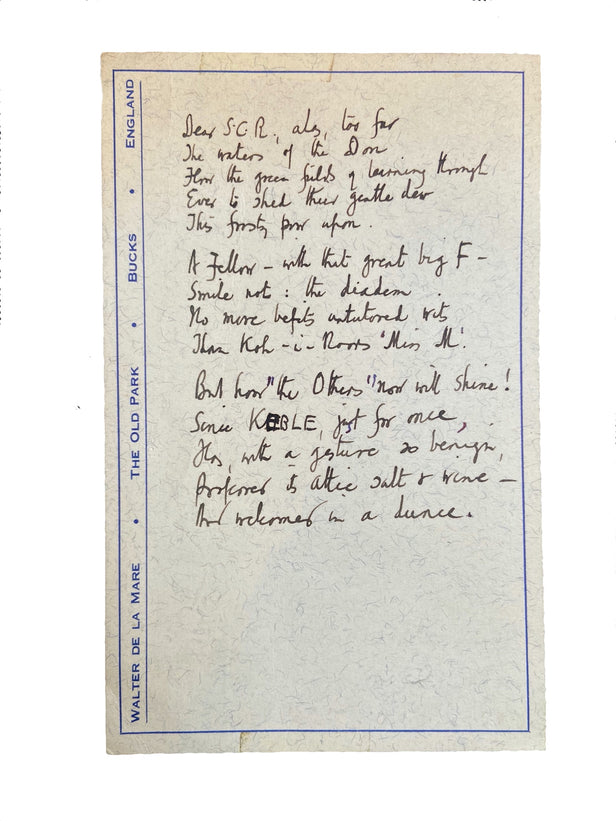 WALTER DE LA MARE • THE OLD PARK • BUCKS • ENGLAND
Dear S.C.R., alas, too far
The waters of the Don
Flow the green fields of learning through
Ever to shed their gentle dew
This frosty pow upon.
A Fellow – with that great big F –
Smile not : the diadem
No more befits untutored wits
Than Koh-i-Noors 'Miss M'.
But how "the Others" now will shine!
Since KEBLE, just for once,
Has, with a gesture so benign,
Proffered its attic salt & wine –
And welcomed in a dunce.